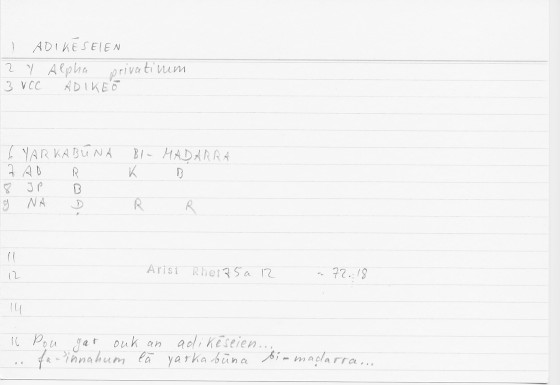 1 ADIKĒSEIEN
2 Y Alpha privativum
3 VCC ADIKEŌ
6 YARKABŪNA BI- MAḌARRA
7 AD R K B
8 JP B
9 NA Ḍ R R
11
12 Arist Rhet 75a 12 ~ 72.18
14
15 Pou gar ouk an adikēseien...
.. fa-'innahum lā yarkabūna bi-maḍarra...